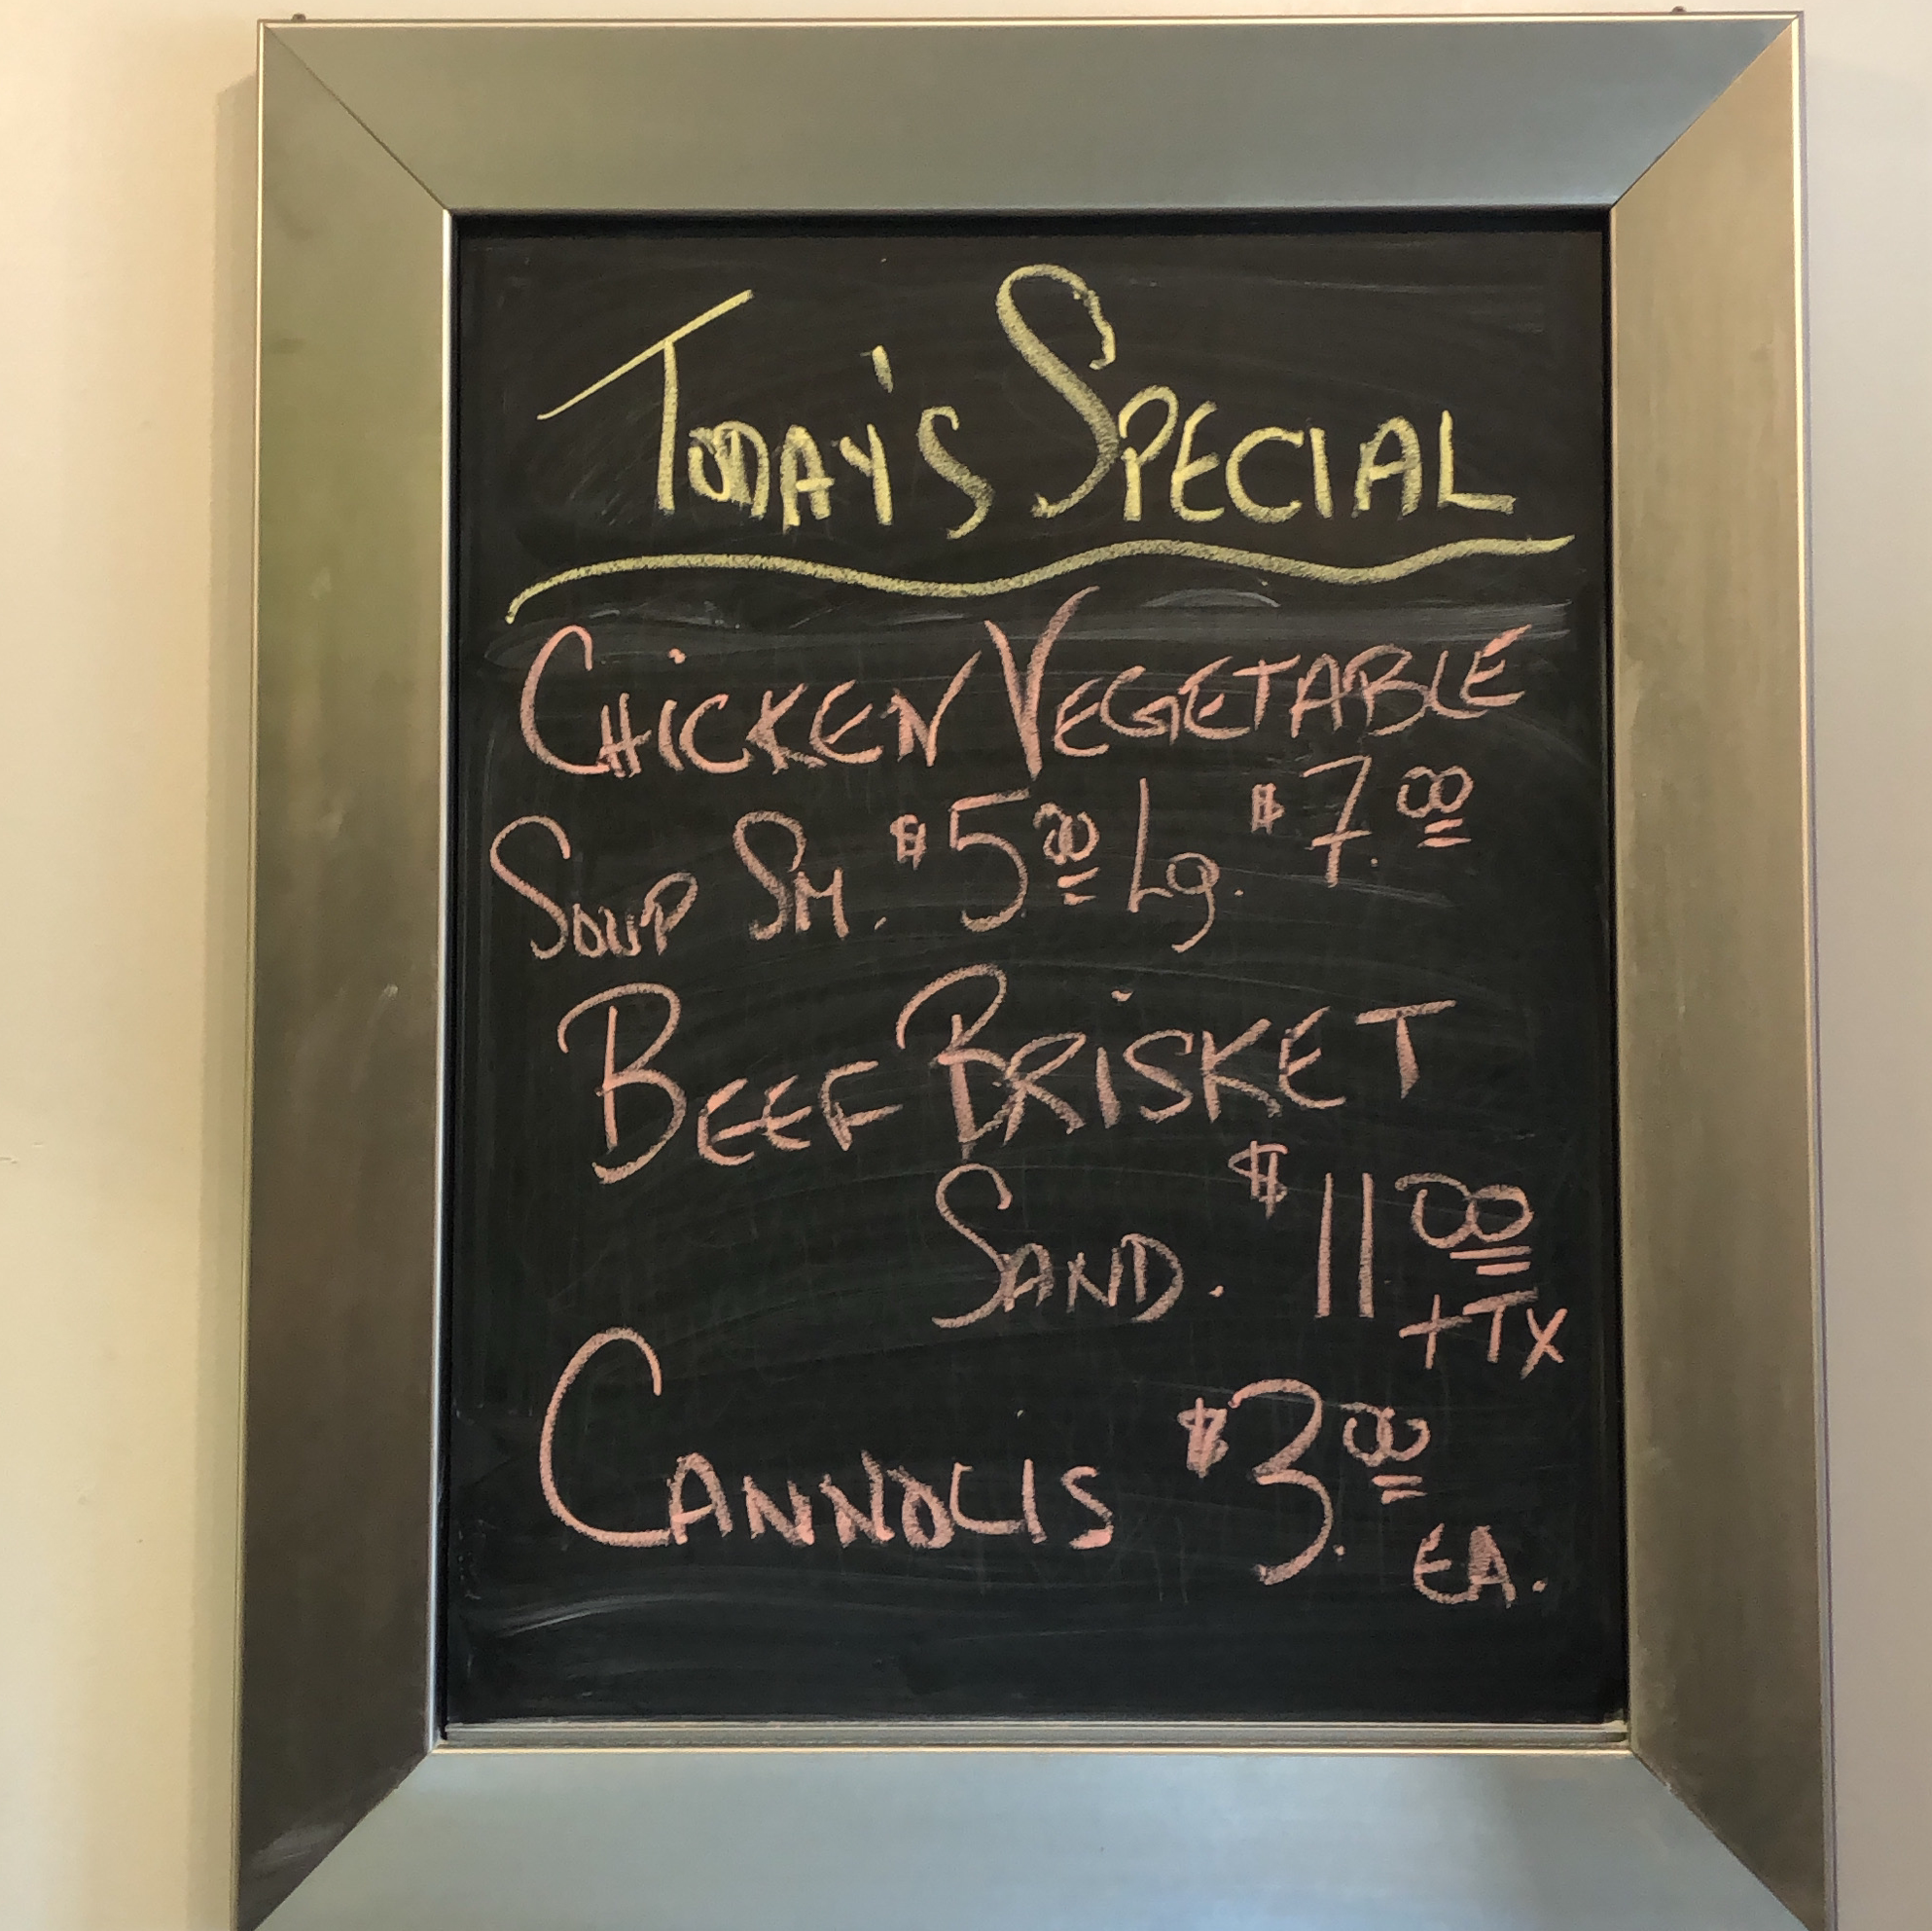 TODAY'S SPECIAL
CHICKEN VEGETABLE
SOUP SM. $5.00 Lg. $7.00
BEEF BRISKET
SAND. $11.00
+TX
CANNOLIS $3.00
EA.